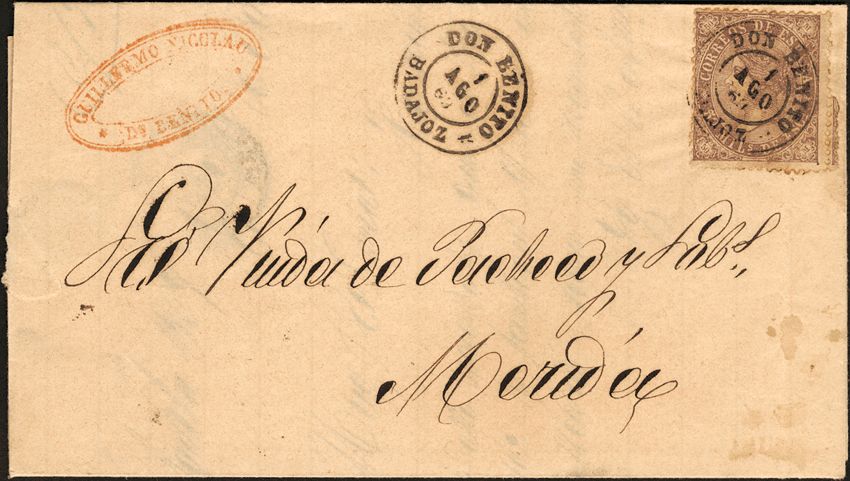 GUILLERMO NICOLAU
* DN BENITO *
DON BENITO
1
AGO
69
BADAJOZ
CORREOS DE ES
DON BENITO
1
AGO
69
MILS DE
Sres Viuda de Pacheco y Sobs.
Merida